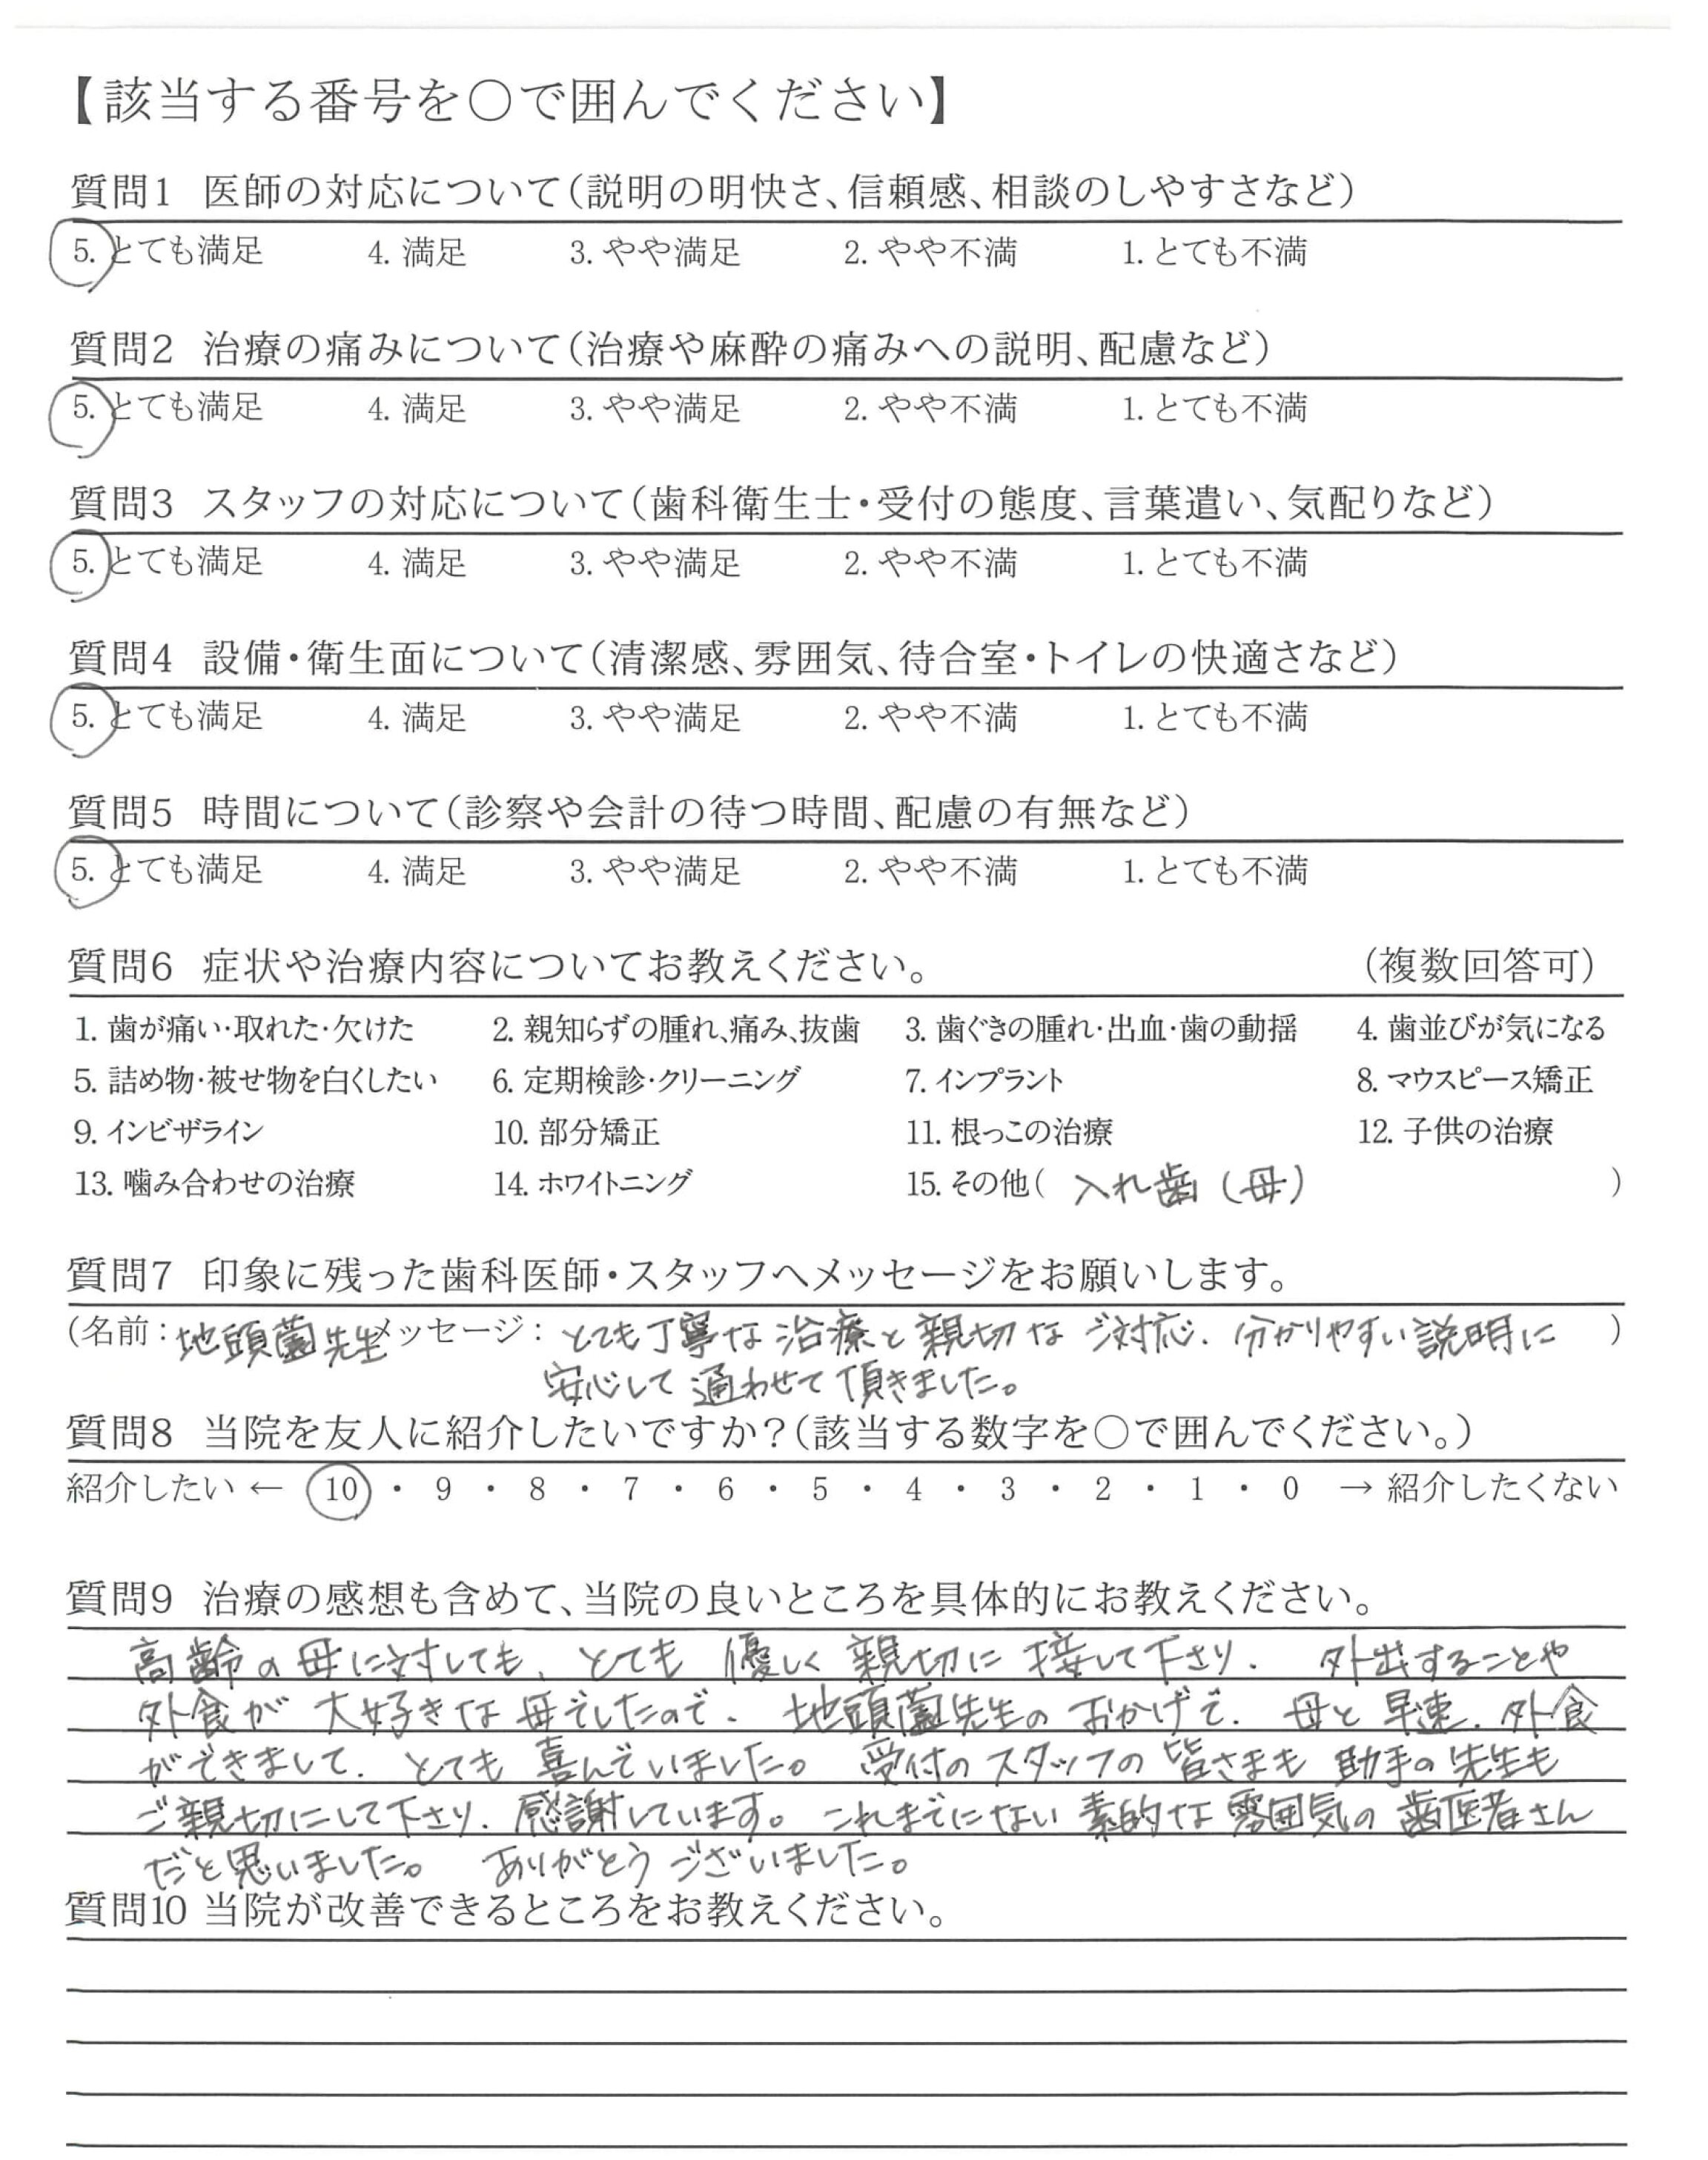 【該当する番号を〇で囲んでください】
質問1 医師の対応について(説明の明快さ、信頼感、相談のしやすさなど)
5. とても満足 4. 満足 3. やや満足 2. やや不満 1. とても不満
質問2 治療の痛みについて(治療や麻酔の痛みへの説明、配慮など)
5. とても満足 4. 満足 3. やや満足 2. やや不満 1. とても不満
質問3 スタッフの対応について(歯科衛生士・受付の態度、言葉遣い、気配りなど)
5. とても満足 4. 満足 3. やや満足 2. やや不満 1. とても不満
質問4 設備・衛生面について(清潔感、雰囲気、待合室・トイレの快適さなど)
5. とても満足 4. 満足 3. やや満足 2. やや不満 1. とても不満
質問5 時間について(診察や会計の待つ時間、配慮の有無など)
5. とても満足 4. 満足 3. やや満足 2. やや不満 1. とても不満
質問6 症状や治療内容についてお教えください。 (複数回答可)
1. 歯が痛い・取れた・欠けた 2. 親知らずの腫れ、痛み、抜歯 3. 歯ぐきの腫れ・出血・歯の動揺 4. 歯並びが気になる
5. 詰め物・被せ物を白くしたい 6. 定期検診・クリーニング 7. インプラント 8. マウスピース矯正
9. インビザライン 10. 部分矯正 11. 根っこの治療 12. 子供の治療
13. 噛み合わせの治療 14. ホワイトニング 15. その他( 入れ歯(母) )
質問7 印象に残った歯科医師・スタッフへメッセージをお願いします。
(名前: 地頭薗先生 メッセージ: とても丁寧な治療と親切なご対応、分かりやすい説明に )
安心して通わせて頂きました。
質問8 当院を友人に紹介したいですか?(該当する数字を〇で囲んでください。)
紹介したい ← 10 ・ 9 ・ 8 ・ 7 ・ 6 ・ 5 ・ 4 ・ 3 ・ 2 ・ 1 ・ 0 → 紹介したくない
質問9 治療の感想も含めて、当院の良いところを具体的にお教えください。
高齢の母に対しても、とても優しく親切に接して下さり、外出することや
外食が大好きな母でしたので、地頭薗先生のおかげで、母と早速、外食
ができまして、とても喜んでいました。受付のスタッフの皆さまも助手の先生も
ご親切にして下さり、感謝しています。これまでにない素的な雰囲気の歯医者さん
だと思いました。ありがとうございました。
質問10 当院が改善できるところをお教えください。